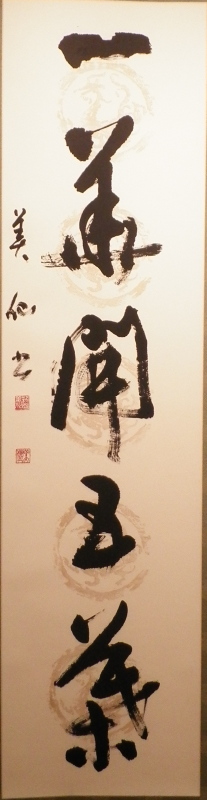 一華開五葉
美仙書